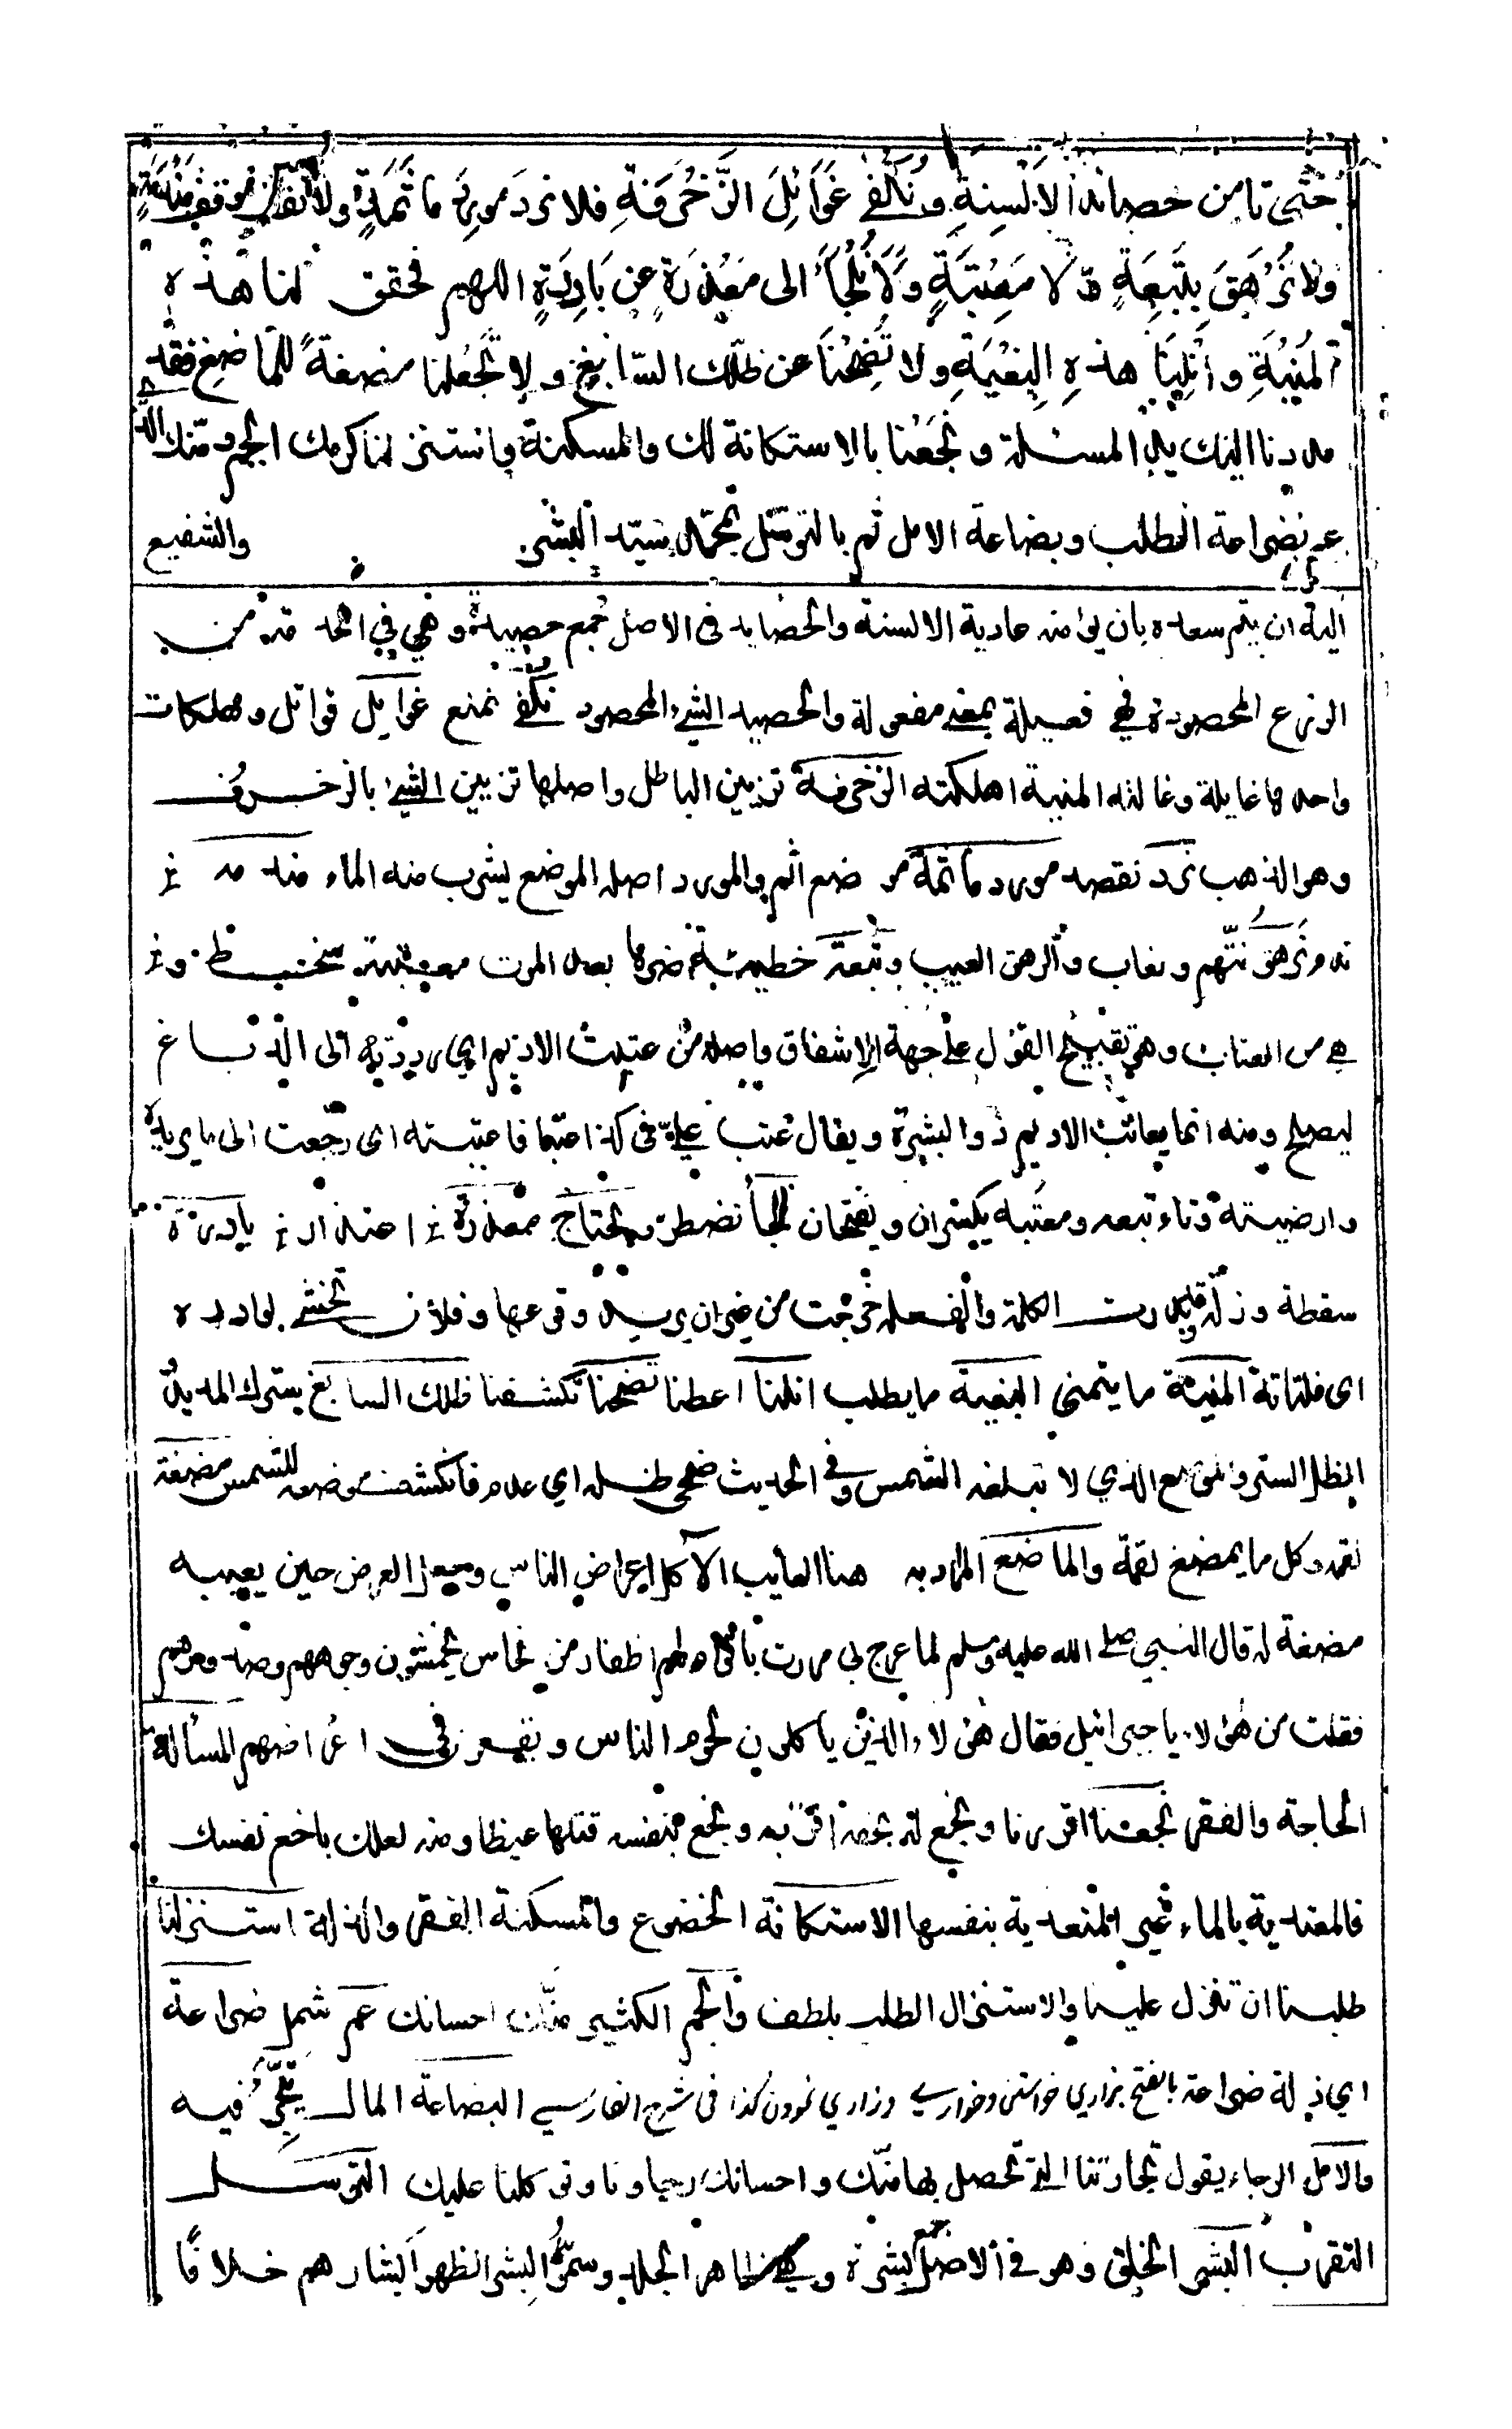 حَتّٰى نامن حصائد الاَلْسِنَةِ وَنُكْفٰى غَوَائِلَ الزَّخْرَفَةِ فلا نرد مورد مَأثَمَةٍ ولا نقف موقف مَنْدَمَةٍ
ولا نُرْهَقَ بِتَبِعَةٍ ولا مَعْتَبَةٍ وَلَا نُلْجَأَ الى مَعْذِرَةٍ عن بَادِرَةٍ اللهم فحقق لنا هذه
المُنْيَةَ وانلنا هذه البغيةِ ولا تُضْحِنَا عن ظلّك السّابغ ولا تَجْعَلنا مضغةً للماضغ فقد
مددنا اليك يد المسئلة وبَخَعْنا بالاستكانة لك والمسكنة واستنزلنا كرمك الجم ومنك الذى
عم بضراعة الطلب وبضاعة الامل ثم بالتوسل بمحمد سيد البشر والشفيع
اليه ان يتم سعده بان يؤمنه عادية الالسنة والحصايد فى الاصل جمع حصيدة وهي في
الزرع المحصودة فهي فعيلة بمعنى مفعولة والحصيد الشيء المحصود نكفى نمنع غوايل قواتل ومهلكات
واحدها غايلة وغالته المنية اهلكته الزخرفة تزيين الباطل واصلها تزيين الشيئ بالزخرف
وهو الذهب نرد نقصد مورد مأثمة موضع اثم والمورد اصله الموضع يشرب منه الماء
نرهق نتهم ونعاب والرهق العيب وتبعة خطيئة ضرها بعد الموت معتبة سخط
هى من العتاب وهى تقبيح القول على جهة الاشفاق واصله من عتبت الاديم اي رددته الى الدباغ
ليصلح ومنه انما يعاتب الاديم ذو البشرة ويقال عتب علىّ فى كذا عتبا فاعتبته اى رجعت الى ما يريده
وارضيته وتاء تبعه ومعتبه يكسران ويفتحان نلجأ نضطر ونحتاج معذرة اعتذار بادرة
سقطة وزلة الكلمة والفعلة خرجت من غير ان يريد وقوعها وفلان تخشى بوادره
اى فلتاته المنية ما يتمنى البغية ما يطلب انلنا اعطنا تضحنا تكشفنا ظلك السابغ سترك المديد
الظل الستر والموضع الذي لا تبلغه الشمس وفى الحديث ضحى ظله اي عدم فانكشف موضعه للشمس مضغة
لقمة وكل ما يمضغ لقمة والماضغ المراد به هنا العايب الآكل اعراض الناس وجعل العرض حين يعيبه
مضغة له قال النبي صلى الله عليه وسلم لما عرج بى مررت باقوام لهم اظفار من نحاس يخمشون وجوههم وصدورهم
فقلت من هؤلاء يا جبرائيل فقال هؤلاء الذين ياكلون لحوم الناس ويقعون فى اعراضهم المسألة
الحاجة والفقر بخعنا اقررنا وبخع له بحقه اقر به وبخع نفسه قتلها غيظا ومنه لعلك باخع نفسك
فالمعتدية بالباء غير المتعدية بنفسها الاستكانة الخضوع والمسكنة الفقر والذلة استنزلنا
طلبنا ان تنزل علينا والاستنزال الطلب بلطف والجم الكثير منّك احسانك عم شمل ضراعة
اي ذلة ضراعة بالفتح بزاري خواستن وخواري وزاري نمودن كذا فى شرح الفارسي البضاعة المال يتجر فيه
والامل الرجاء يقول تجارتنا التى تحصل بها منّك واحسانك رجاونا وتوكلنا عليك التوسل
التقرب البشر الخلق وهو فى الاصل جمع بشرة وهى ظاهر الجلد وسموا البشر لظهور ابشارهم خلافا